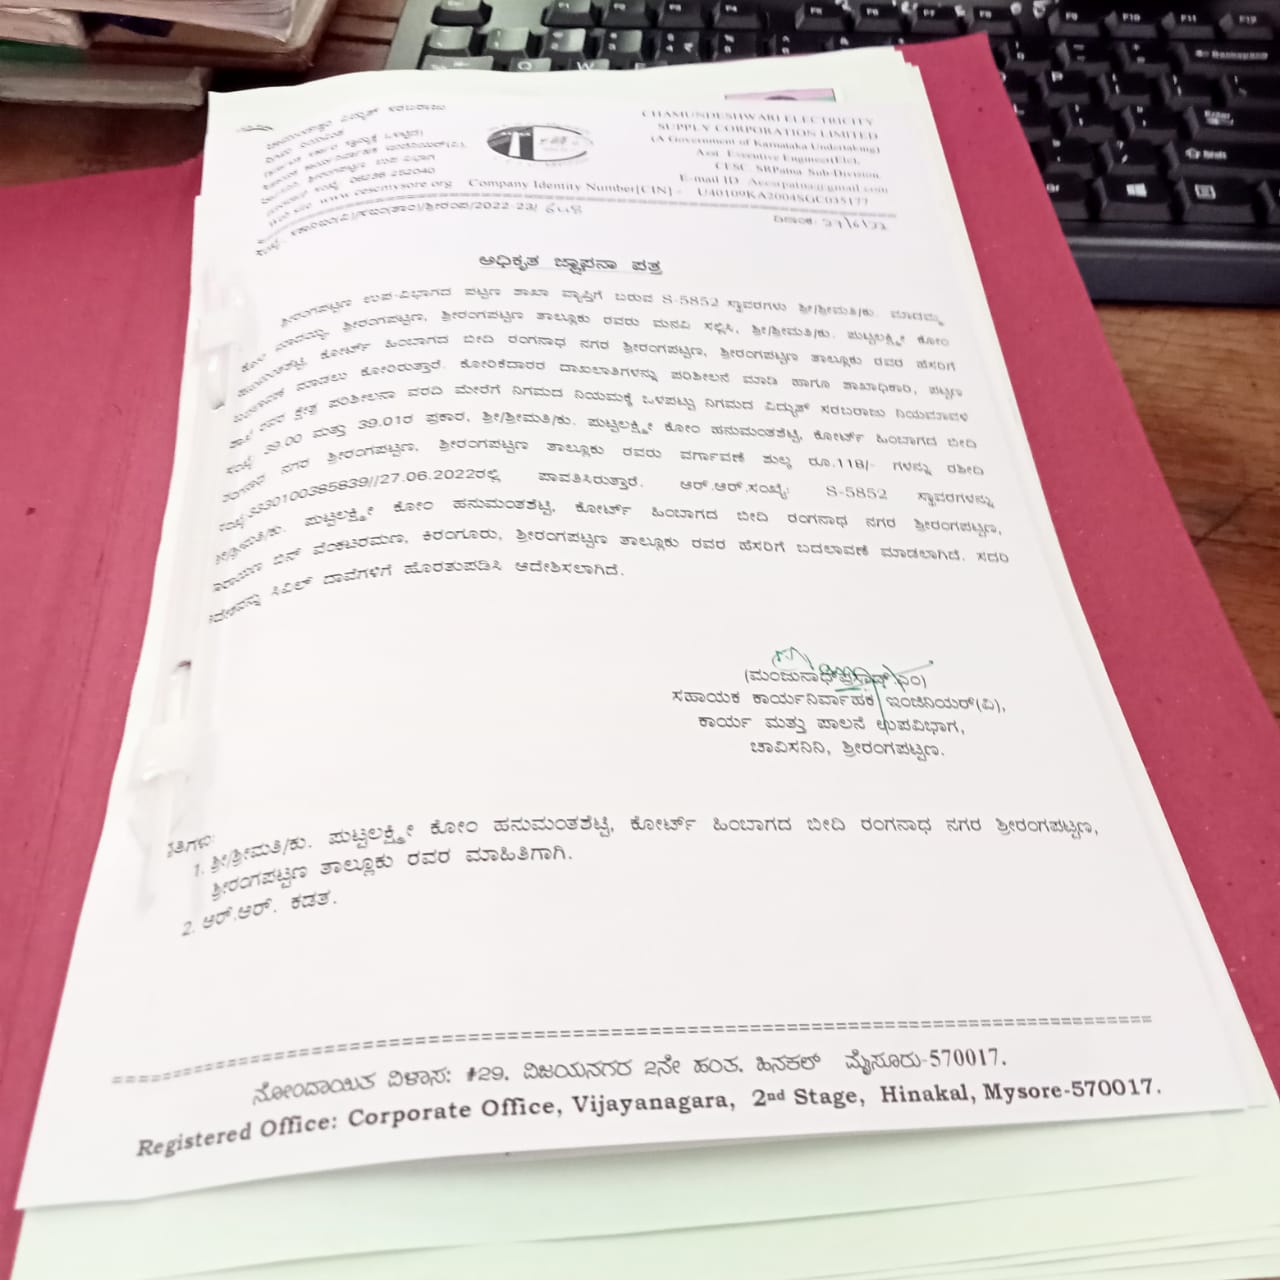 ಚಾಮುಂಡೇಶ್ವರಿ ವಿದ್ಯುತ್ ಸರಬರಾಜು
CHAMUNDESHWARI ELECTRICITY
SUPPLY CORPORATION LIMITED
(A Government of Karnataka Undertaking)
Asst. Executive Engineer(Ele),
CESC, SRPatna Sub-Division.
08236-252040
E-mail ID Aeesrpatna@gmail.com
Web site www.cescmysore.org Company Identity Number[CIN] - U40109KA2004SGC035177
/2022-23/
ದಿನಾಂಕ: 27/6/22
ಅಧಿಕೃತ ಜ್ಞಾಪನಾ ಪತ್ರ
ಶ್ರೀರಂಗಪಟ್ಟಣ ಉಪ-ವಿಭಾಗದ ಪಟ್ಟಣ ಶಾಖಾ ವ್ಯಾಪ್ತಿಗೆ ಬರುವ S-5852 ಸ್ಥಾವರಗಳು ಶ್ರೀ/ಶ್ರೀಮತಿ/ಕು. ಮಾದಮ್ಮ
ಕೋಂ ಮಾದಯ್ಯ, ಶ್ರೀರಂಗಪಟ್ಟಣ, ಶ್ರೀರಂಗಪಟ್ಟಣ ತಾಲ್ಲೂಕು ರವರು ಮನವಿ ಸಲ್ಲಿಸಿ, ಶ್ರೀ/ಶ್ರೀಮತಿ/ಕು. ಪುಟ್ಟಲಕ್ಷ್ಮೀ ಕೋಂ
ಹನುಮಂತಶೆಟ್ಟಿ, ಕೋರ್ಟ್ ಹಿಂಬಾಗದ ಬೀದಿ ರಂಗನಾಥ ನಗರ ಶ್ರೀರಂಗಪಟ್ಟಣ, ಶ್ರೀರಂಗಪಟ್ಟಣ ತಾಲ್ಲೂಕು ರವರ ಹೆಸರಿಗೆ
ಬದಲಾವಣೆ ಮಾಡಲು ಕೋರಿರುತ್ತಾರೆ. ಕೋರಿಕೆದಾರರ ದಾಖಲಾತಿಗಳನ್ನು ಪರಿಶೀಲನೆ ಮಾಡಿ ಹಾಗೂ ಶಾಖಾಧಿಕಾರಿ, ಪಟ್ಟಣ
ಶಾಖೆ ರವರ ಕ್ಷೇತ್ರ ಪರಿಶೀಲನಾ ವರದಿ ಮೇರೆಗೆ ನಿಗಮದ ನಿಯಮಕ್ಕೆ ಒಳಪಟ್ಟು ನಿಗಮದ ವಿದ್ಯುತ್ ಸರಬರಾಜು ನಿಯಮಾವಳಿ
ಸಂಖ್ಯೆ: 39.00 ಮತ್ತು 39.01ರ ಪ್ರಕಾರ, ಶ್ರೀ/ಶ್ರೀಮತಿ/ಕು. ಪುಟ್ಟಲಕ್ಷ್ಮೀ ಕೋಂ ಹನುಮಂತಶೆಟ್ಟಿ, ಕೋರ್ಟ್ ಹಿಂಬಾಗದ ಬೀದಿ
ರಂಗನಾಥ ನಗರ ಶ್ರೀರಂಗಪಟ್ಟಣ, ಶ್ರೀರಂಗಪಟ್ಟಣ ತಾಲ್ಲೂಕು ರವರು ವರ್ಗಾವಣೆ ಶುಲ್ಕ ರೂ.118/- ಗಳನ್ನು ರಶೀದಿ
27.06.2022ರಲ್ಲಿ ಪಾವತಿಸಿರುತ್ತಾರೆ. ಆರ್.ಆರ್.ಸಂಖ್ಯೆ: S-5852 ಸ್ಥಾವರಗಳನ್ನು
ಶ್ರೀ/ಶ್ರೀಮತಿ/ಕು. ಪುಟ್ಟಲಕ್ಷ್ಮೀ ಕೋಂ ಹನುಮಂತಶೆಟ್ಟಿ, ಕೋರ್ಟ್ ಹಿಂಬಾಗದ ಬೀದಿ ರಂಗನಾಥ ನಗರ ಶ್ರೀರಂಗಪಟ್ಟಣ,
ನಾರಾಯಣ ಬಿನ್ ವೆಂಕಟರಮಣ, ಕಿರಂಗೂರು, ಶ್ರೀರಂಗಪಟ್ಟಣ ತಾಲ್ಲೂಕು ರವರ ಹೆಸರಿಗೆ ಬದಲಾವಣೆ ಮಾಡಲಾಗಿದೆ. ಸದರಿ
ಆದೇಶವನ್ನು ಸಿವಿಲ್ ದಾವೆಗಳಿಗೆ ಹೊರತುಪಡಿಸಿ ಆದೇಶಿಸಲಾಗಿದೆ.
(ಮಂಜುನಾಥ್‌ಪ್ರಸಾದ್.ಎಂ)
ಸಹಾಯಕ ಕಾರ್ಯನಿರ್ವಾಹಕ ಇಂಜಿನಿಯರ್(ವಿ),
ಕಾರ್ಯ ಮತ್ತು ಪಾಲನೆ ಉಪವಿಭಾಗ,
ಚಾವಿಸನಿನಿ, ಶ್ರೀರಂಗಪಟ್ಟಣ.
ಪ್ರತಿಗಳು:
1. ಶ್ರೀ/ಶ್ರೀಮತಿ/ಕು. ಪುಟ್ಟಲಕ್ಷ್ಮೀ ಕೋಂ ಹನುಮಂತಶೆಟ್ಟಿ, ಕೋರ್ಟ್ ಹಿಂಬಾಗದ ಬೀದಿ ರಂಗನಾಥ ನಗರ ಶ್ರೀರಂಗಪಟ್ಟಣ,
ಶ್ರೀರಂಗಪಟ್ಟಣ ತಾಲ್ಲೂಕು ರವರ ಮಾಹಿತಿಗಾಗಿ.
2. ಆರ್.ಆರ್. ಕಡತ.
ನೋಂದಾಯಿತ ವಿಳಾಸ: #29, ವಿಜಯನಗರ 2ನೇ ಹಂತ, ಹಿನಕಲ್ ಮೈಸೂರು-570017.
Registered Office: Corporate Office, Vijayanagara, 2nd Stage, Hinakal, Mysore-570017.